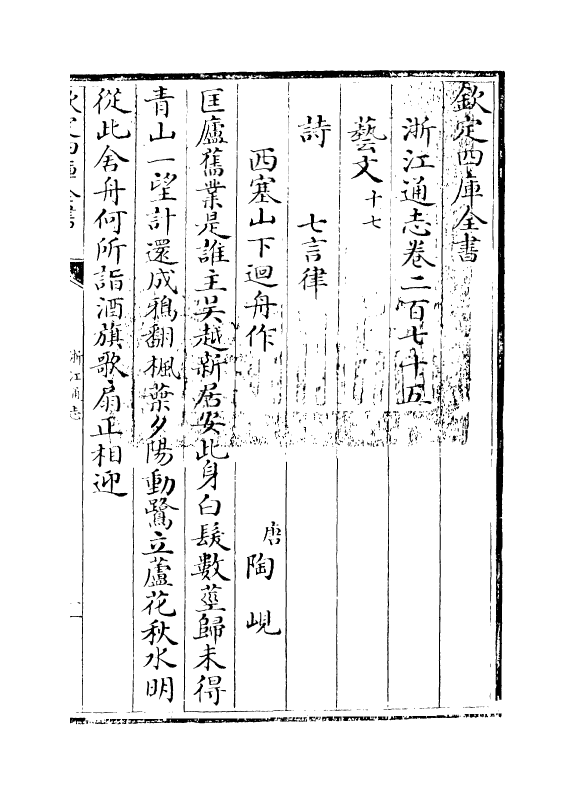 欽定四庫全書
浙江通志卷二百七十五
藝文十七
詩　七言律
西塞山下迴舟作　唐陶峴
匡廬舊業是誰主吳越新居安此身白髮數莖歸未得
青山一望計還成鴉翻楓葉夕陽動鷺立蘆花秋水明
從此舍舟何所詣酒旗歌扇正相迎
欽定四庫全書
浙江通志
一